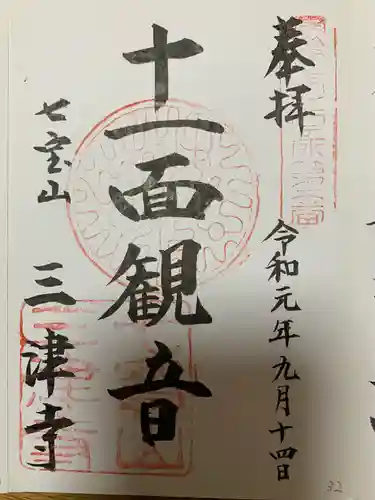 奉拝
令和元年九月十四日
十一面観音
七宝山
三津寺
32